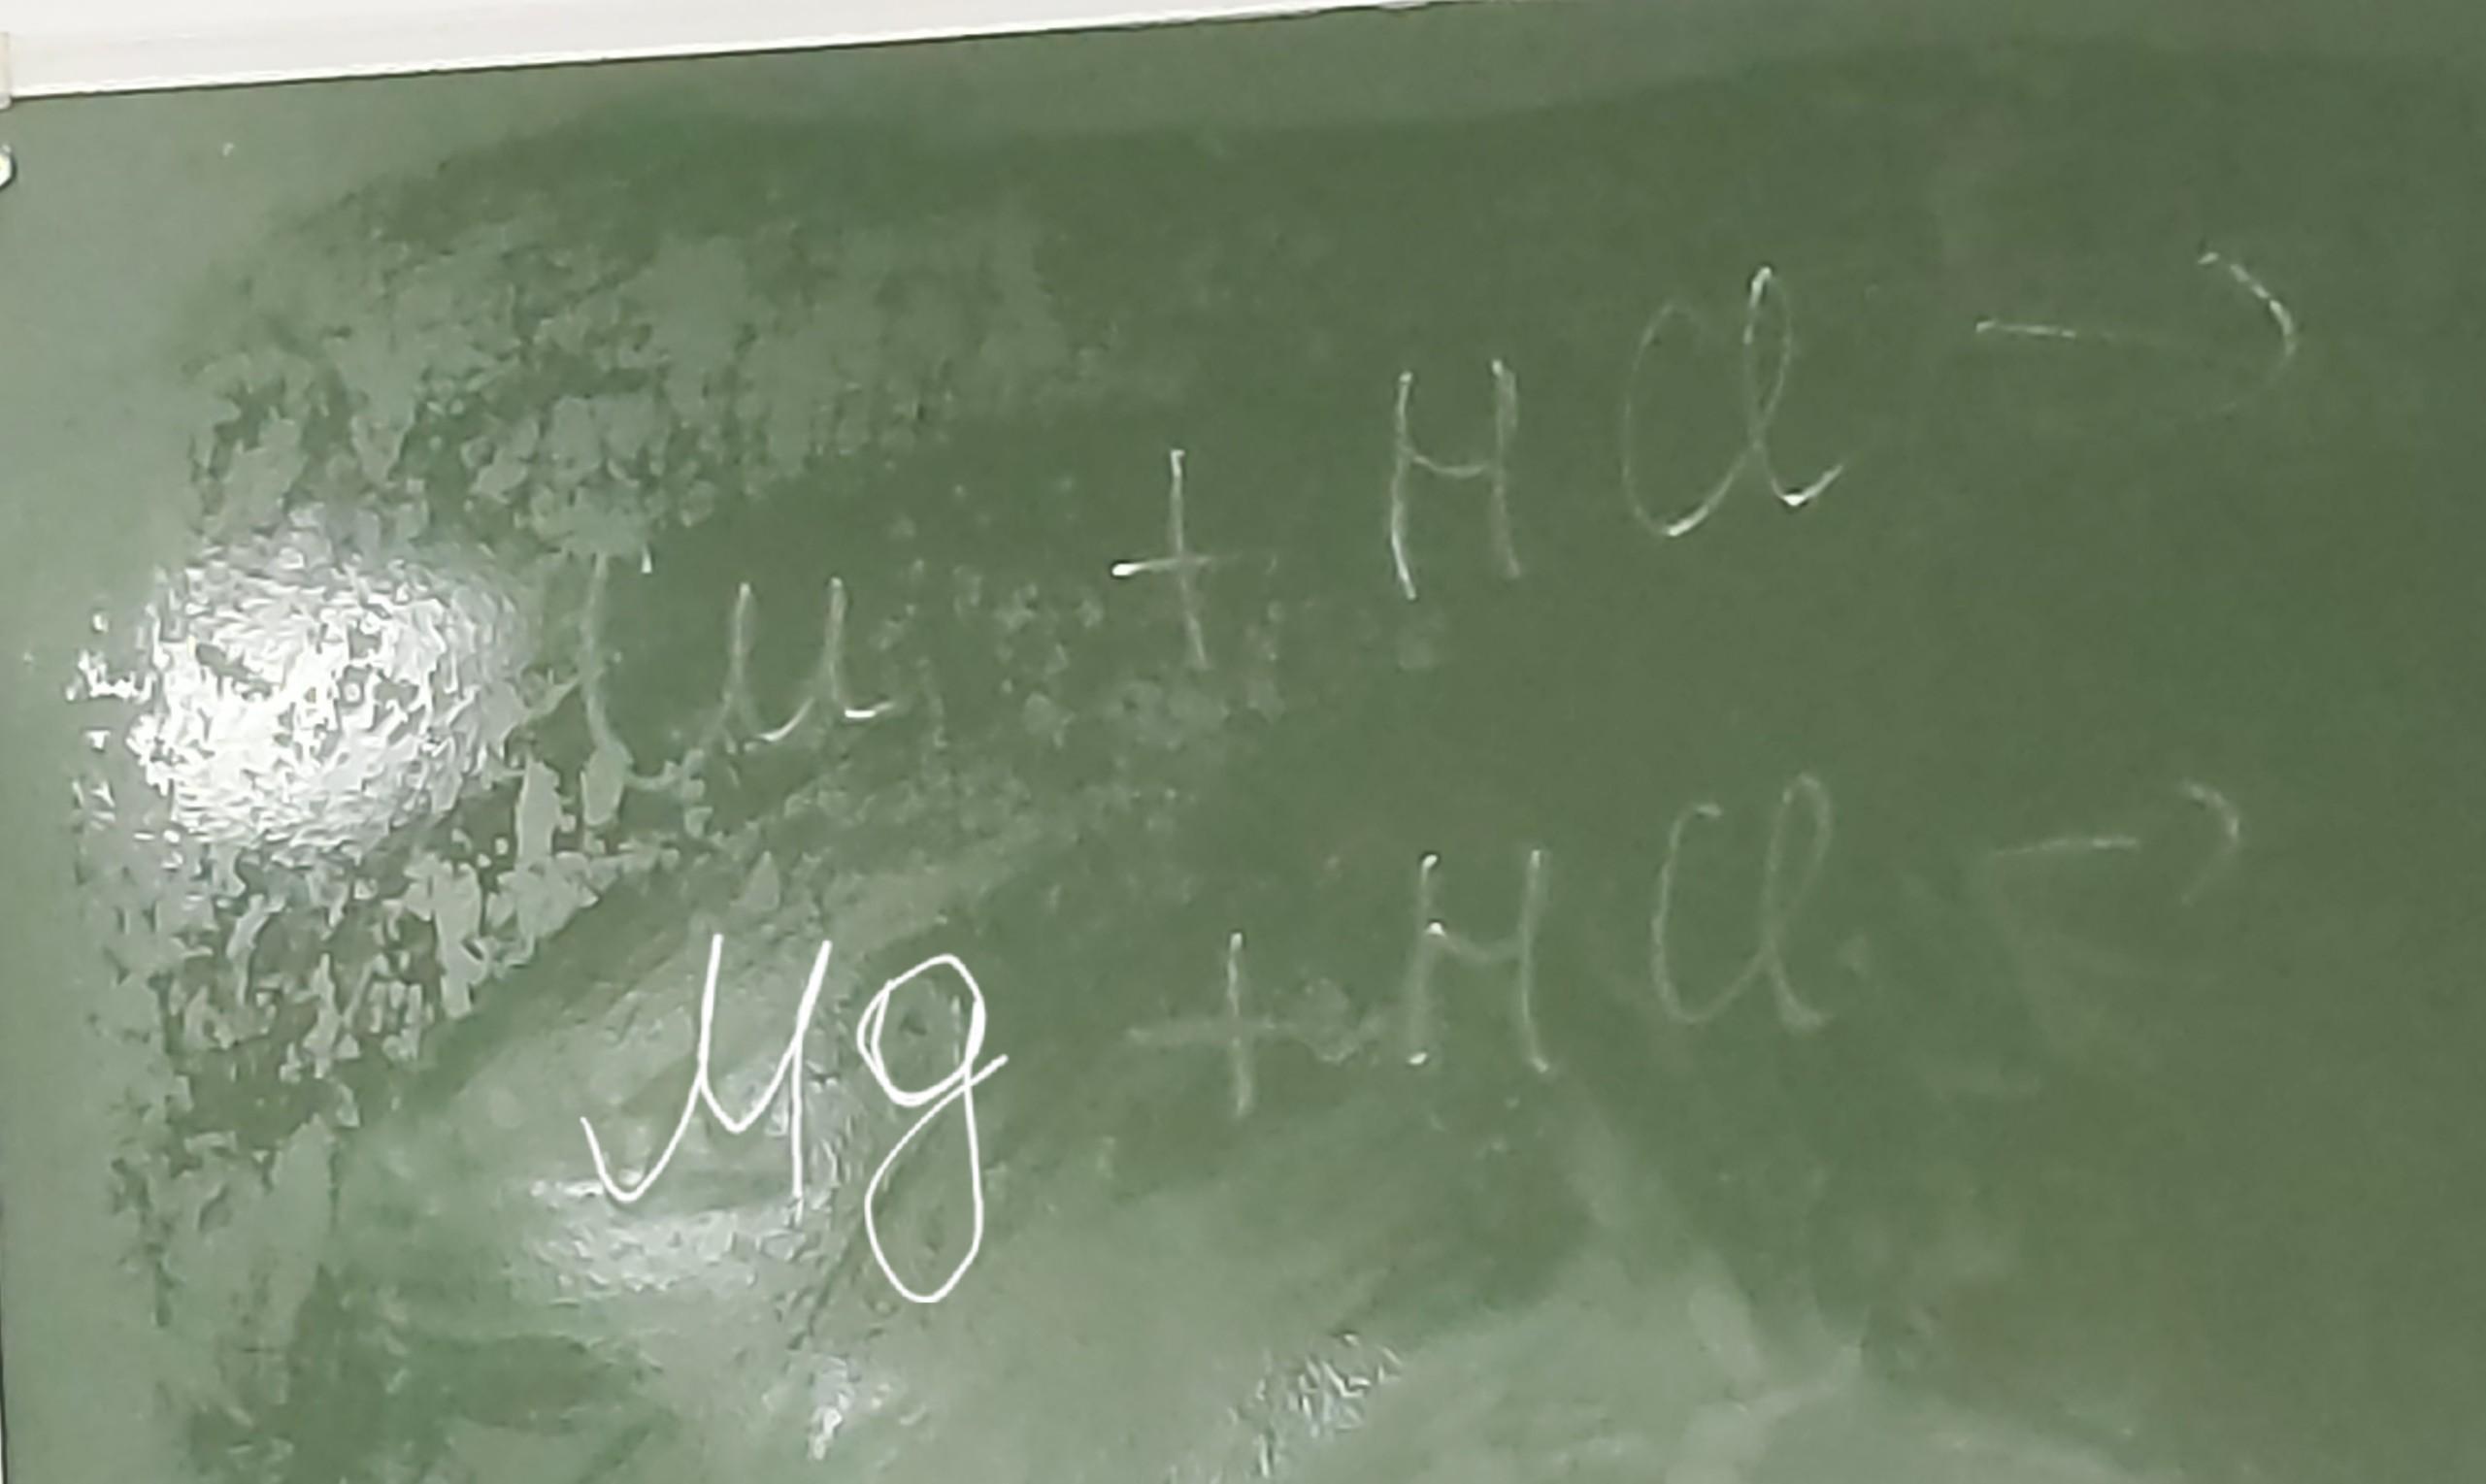 Cu + HCl →
Mg + HCl →